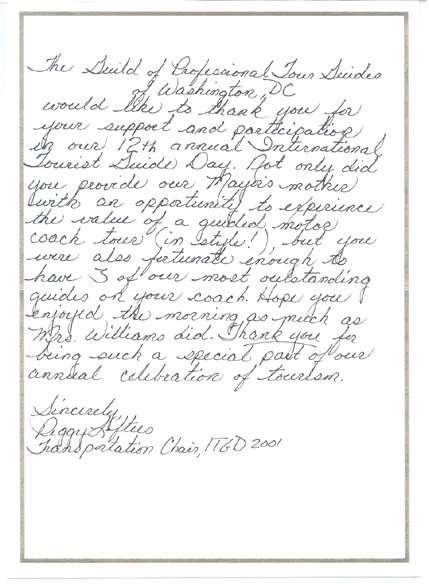 The Guild of Professional Tour Guides
of Washington, DC
would like to thank you for
your support and participation
in our 12th annual International
Tourist Guide Day. Not only did
you provide our Mayor's mother
with an opportunity to experience
the value of a guided motor
coach tour (in style!), but you
were also fortunate enough to
have 3 of our most outstanding
guides on your coach. Hope you
enjoyed the morning as much as
Mrs. Williams did. Thank you for
being such a special part of our
annual celebration of tourism.
Sincerely,
Peggy
Transportation Chair, ITGD 2001